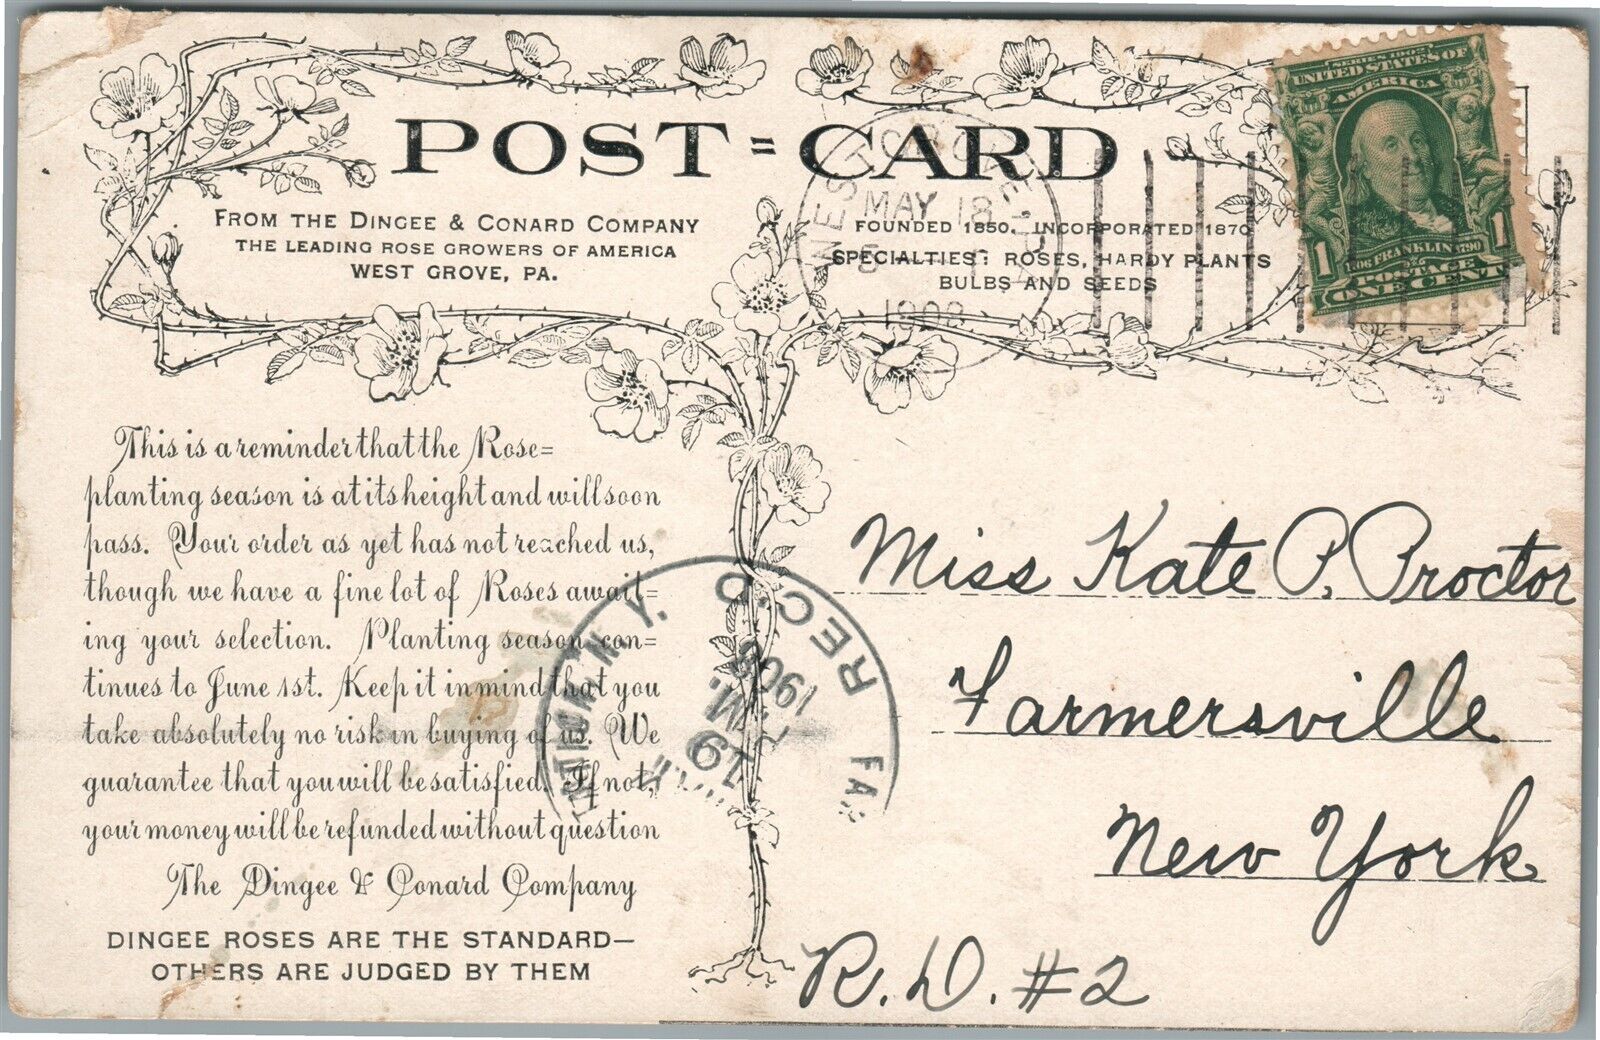 POST=CARD
FROM THE DINGEE & CONARD COMPANY
THE LEADING ROSE GROWERS OF AMERICA
WEST GROVE, PA.
FOUNDED 1850. INCORPORATED 1870
SPECIALTIES: ROSES, HARDY PLANTS
BULBS AND SEEDS
MAY 18
1908
SERIES 1902
UNITED STATES OF
AMERICA
1706 FRANKLIN 1790
1 1
POSTAGE
ONE CENT
This is a reminder that the Rose=
planting season is at its height and will soon
pass. Your order as yet has not reached us,
though we have a fine lot of Roses await=
ing your selection. Planting season con=
tinues to June 1st. Keep it in mind that you
take absolutely no risk in buying of us. We
guarantee that you will be satisfied. If not,
your money will be refunded without question
The Dingee & Conard Company
DINGEE ROSES ARE THE STANDARD—
OTHERS ARE JUDGED BY THEM
N.Y.
REC'D
19
M.
1908
Miss Kate P. Proctor
Farmersville
New York
R.D. #2